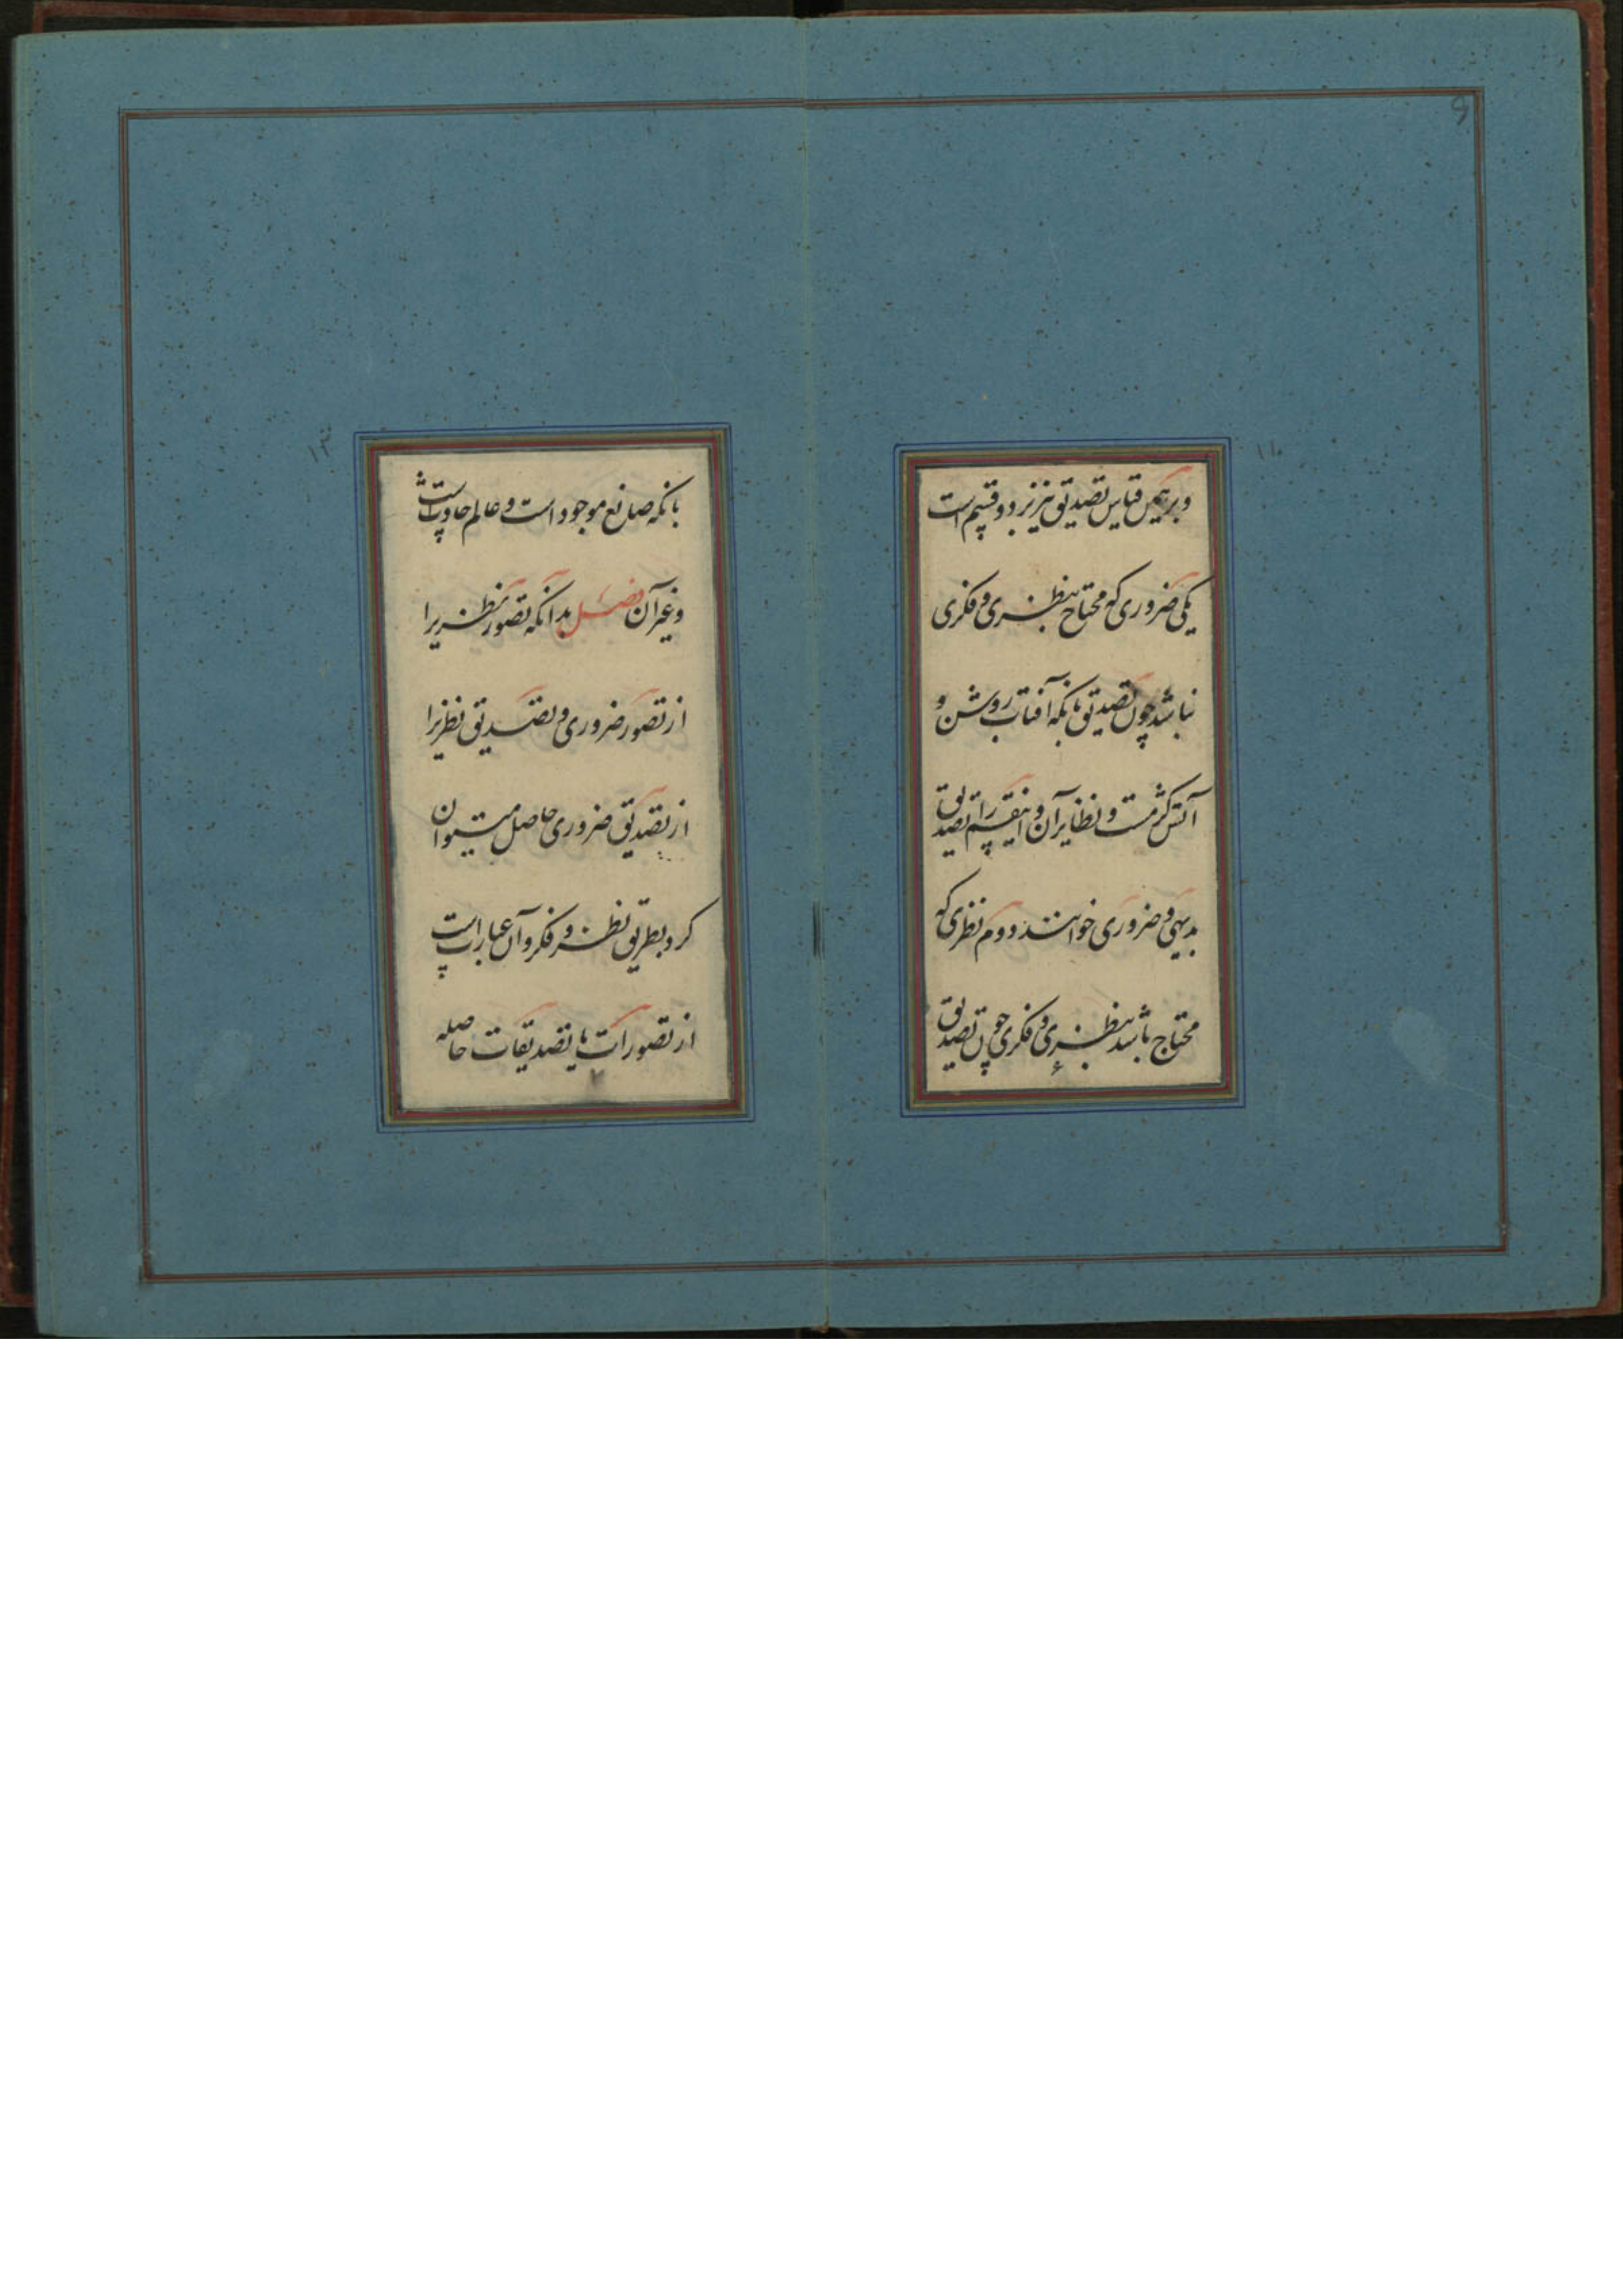 و بر همین قیاس تصدیق نیز بر دو قسم است
یکی ضروری که محتاج بنظری و فکری
نباشد چون تصدیق بانکه آفتاب روشن و
آتش گرمست و نظایر آن و اینقسم را تصدیق
بدیهی و ضروری خوانند دوم نظری که
محتاج باشد بنظری و فکری چون تصدیق
۶
بانکه صانع موجود است و عالم حادث است
و غیر آن فصل بدانکه تصور نظری را
از تصور ضروری و تصدیق نظریرا
از تصدیق ضروری حاصل میتوان
کرد بطریق نظر و فکر و آن عبارتست
از تصورات یا تصدیقات حاصله
۷